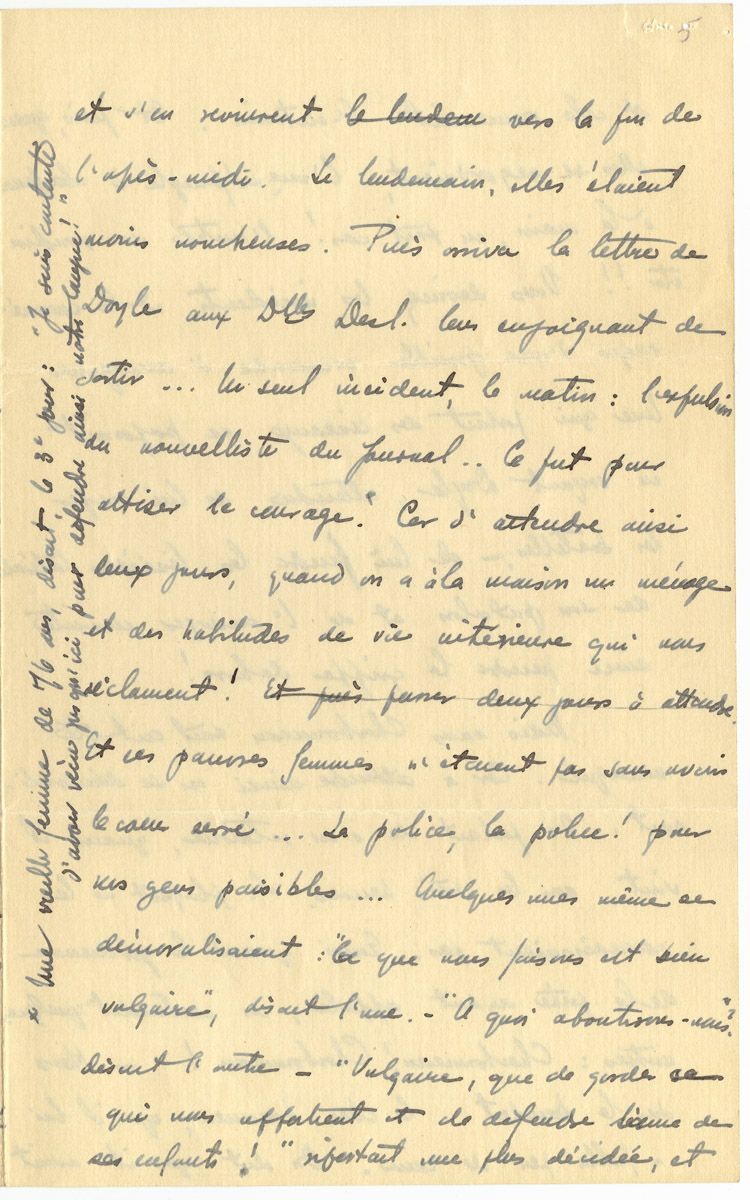 5
et s'en revinrent le lendem vers la fin de
l'après-midi. Le lendemain, elles étaient
moins nombreuses. Puis arriva la lettre de
Doyle aux Dlles Desl. leur enjoignant de
sortir ... Un seul incident, le matin : l'expulsion
du nouvelliste du Journal.. Ce fut pour
attiser le courage. * Car d'attendre ainsi
deux jours, quand on a à la maison un ménage
et des habitudes de vie intérieure qui vous
réclament ! Et puis passer deux jours à attendre.
Et ces pauvres femmes n'étaient pas sans avoir
le coeur serré ... La police, la police ! pour
nos gens paisibles ... Quelques unes même se
démoralisaient : "Ce que nous faisons est bien
vulgaire", disait l'une. - "A quoi aboutirons-nous?"
disait l'autre - "Vulgaire, que de garder ce
qui nous appartient et de défendre l'âme de
ses enfants ! " ripostait une plus décidée, et
* Une vieille femme de 76 ans, disait le 3e jour : "Je suis contente
d'avoir vécu jusqu'ici pour défendre ainsi notre langue ! "